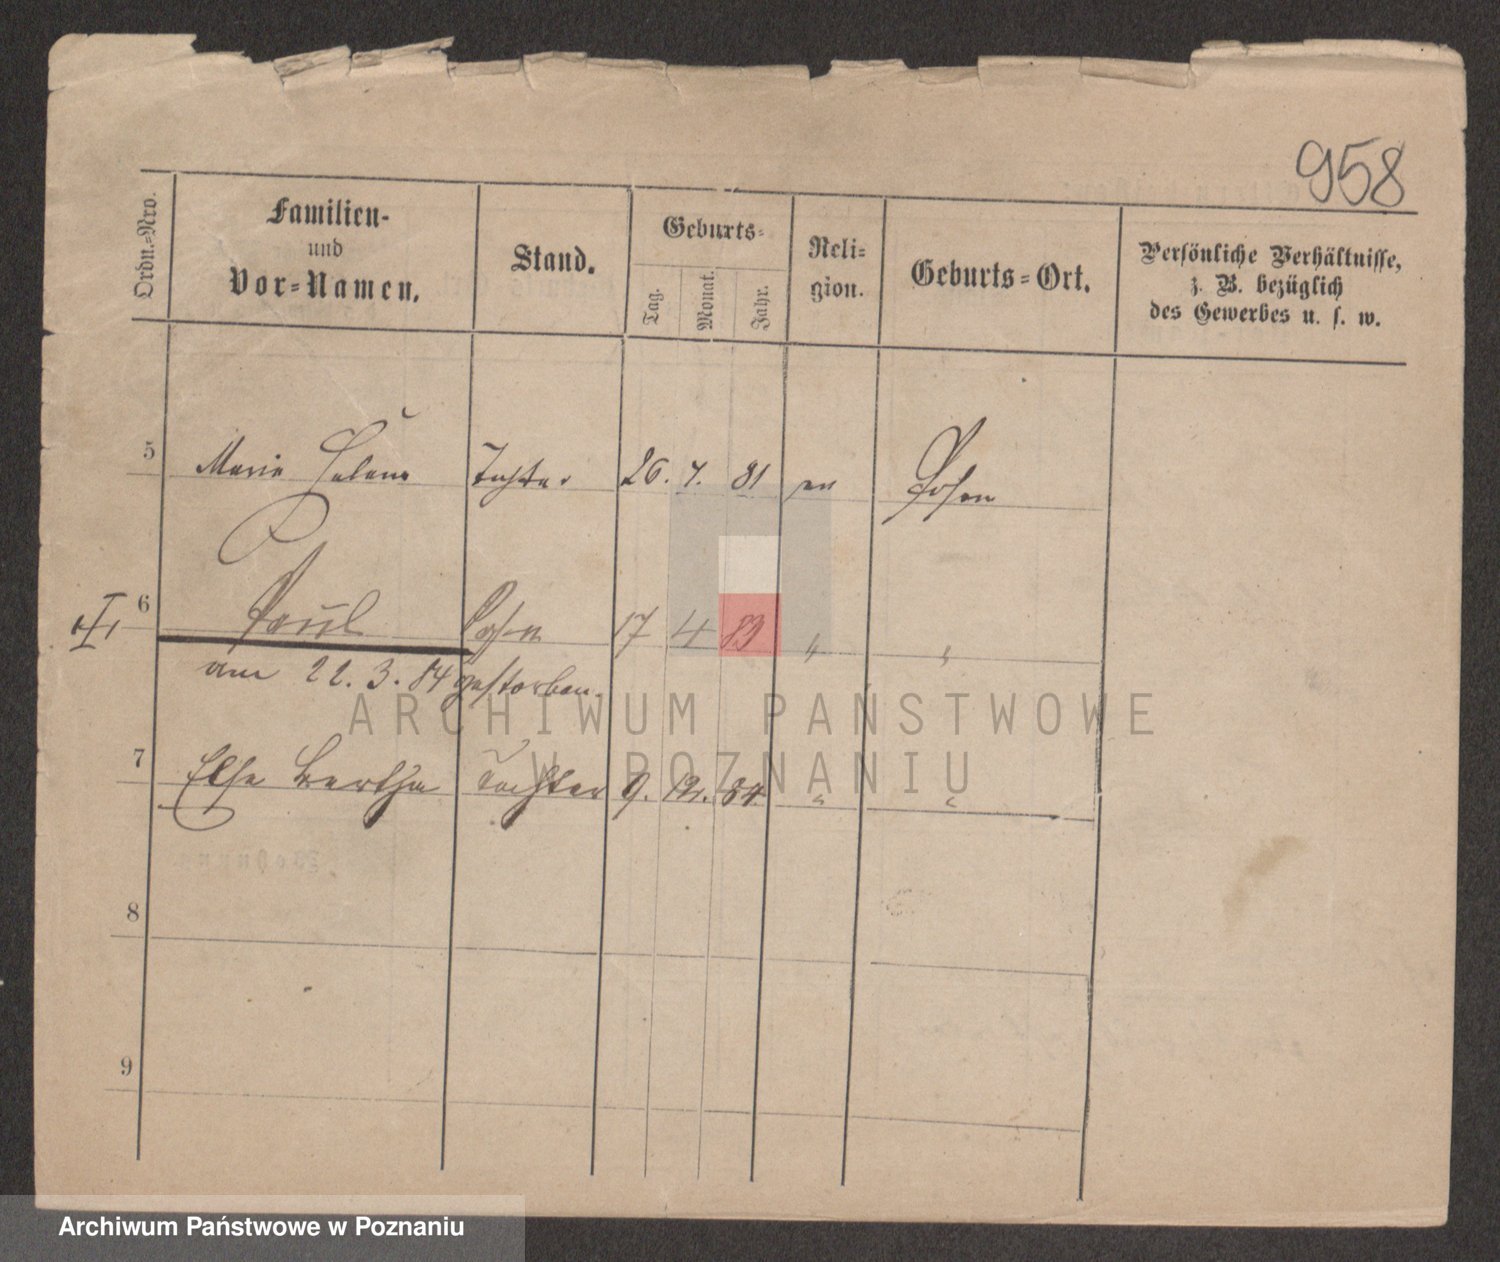 958
Ordn.-Nro.
Familien-
und
Vor-Namen.
Stand.
Geburts-
Tag.
Monat.
Jahr.
Reli-
gion.
Geburts-Ort.
Persönliche Verhältnisse,
z. B. bezüglich
des Gewerbes u. s. w.
5 Marie Helene Tochter 26. 81 ev Posen
6 Paul Posen 17 4 83 " "
am 22. 3. 84 gestorben.
7 Else Bertha Tochter 9. 12. 84. " "
8
9
ARCHIWUM PAŃSTWOWE
W POZNANIU
Archiwum Państwowe w Poznaniu